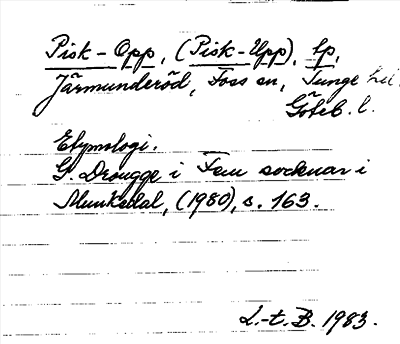 Pisk-Opp, (Pisk-Upp), lp,
Järmunderöd, Foss sn, Tunge hd.
Göteb. l.
Etymologi.
G. Drougge i Fem socknar i
Munkedal, (1980), s. 163.
L.-t. B. 1983.